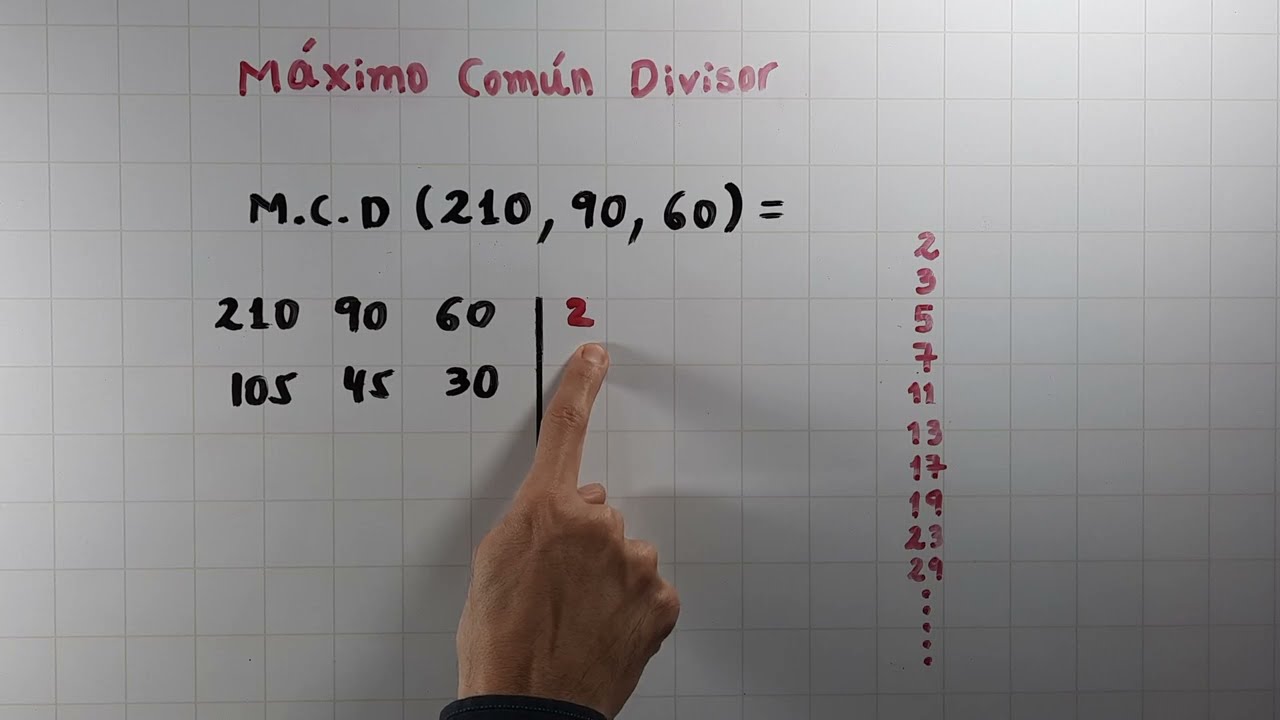 Máximo Común Divisor
M.C.D (210, 90, 60) =
210 90 60 | 2
105 45 30 |
2
3
5
7
11
13
17
19
23
29